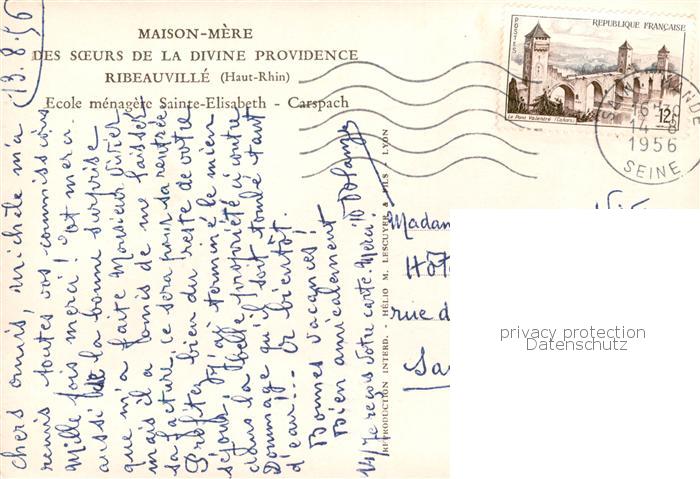 MAISON-MÈRE
DES SŒURS DE LA DIVINE PROVIDENCE
RIBEAUVILLÉ (Haut-Rhin)
Ecole ménagère Sainte-Elisabeth - Carspach
POSTES
REPUBLIQUE FRANÇAISE
Le Pont Valentré (Cahors)
12F
14-8
1956
SEINE
13.8.56
chers amis, michèle m'a
remis toutes vos commissions
Mille fois merci! et merci
aussi de la bonne surprise
que m'a faite Monsieur
mais il a omis de me laisser
sa facture, ce sera pour sa rentrée
Profitez bien du reste de votre
séjour. J'ai terminé le mien
dans la belle propriété ci contre
Dommage qu'il soit tombé tant
d'eau... à bientôt.
Bonnes vacances!
Bien amicalement
14/ Je reçois votre carte. Merci!
REPRODUCTION INTERD. - HÉLIO M. LESCUYER & FILS - LYON
Madam
Hôt
rue d
Sa
privacy protection
Datenschutz